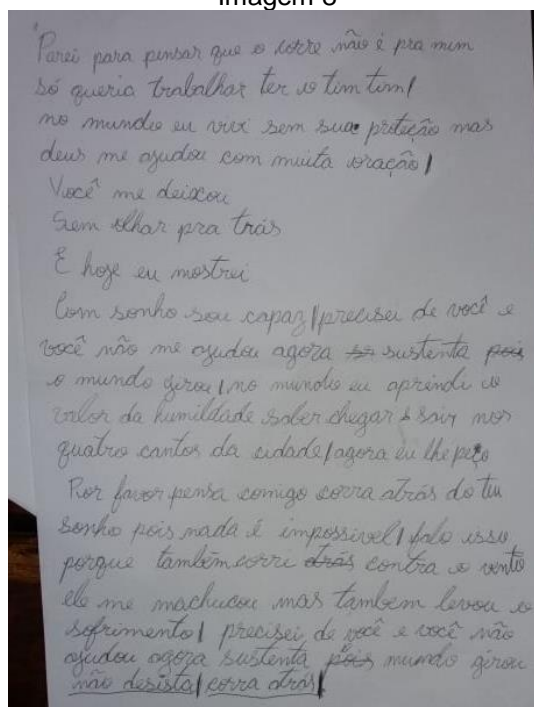 Imagem 3
Parei para pensar que o corre não é pra mim
só queria trabalhar ter o tim tim/
no mundo eu vivi sem sua proteção mas
deus me ajudou com muita oração/
Você me deixou
Sem olhar pra trás
E hoje eu mostrei
Com sonho sou capaz/precisei de você e
você não me ajudou agora sustenta pois
o mundo girou/no mundo eu aprendi o
valor da humildade saber chegar e sair nos
quatro cantos da cidade/agora eu lhe peço
Por favor pensa comigo corra atrás do teu
sonho pois nada é impossivel/falo isso
porque também corri atrás contra o vento
ele me machucou mas também levou o
sofrimento/ precisei de você e você não
ajudou agora sustenta pois mundo girou
não desista/corra atrás/